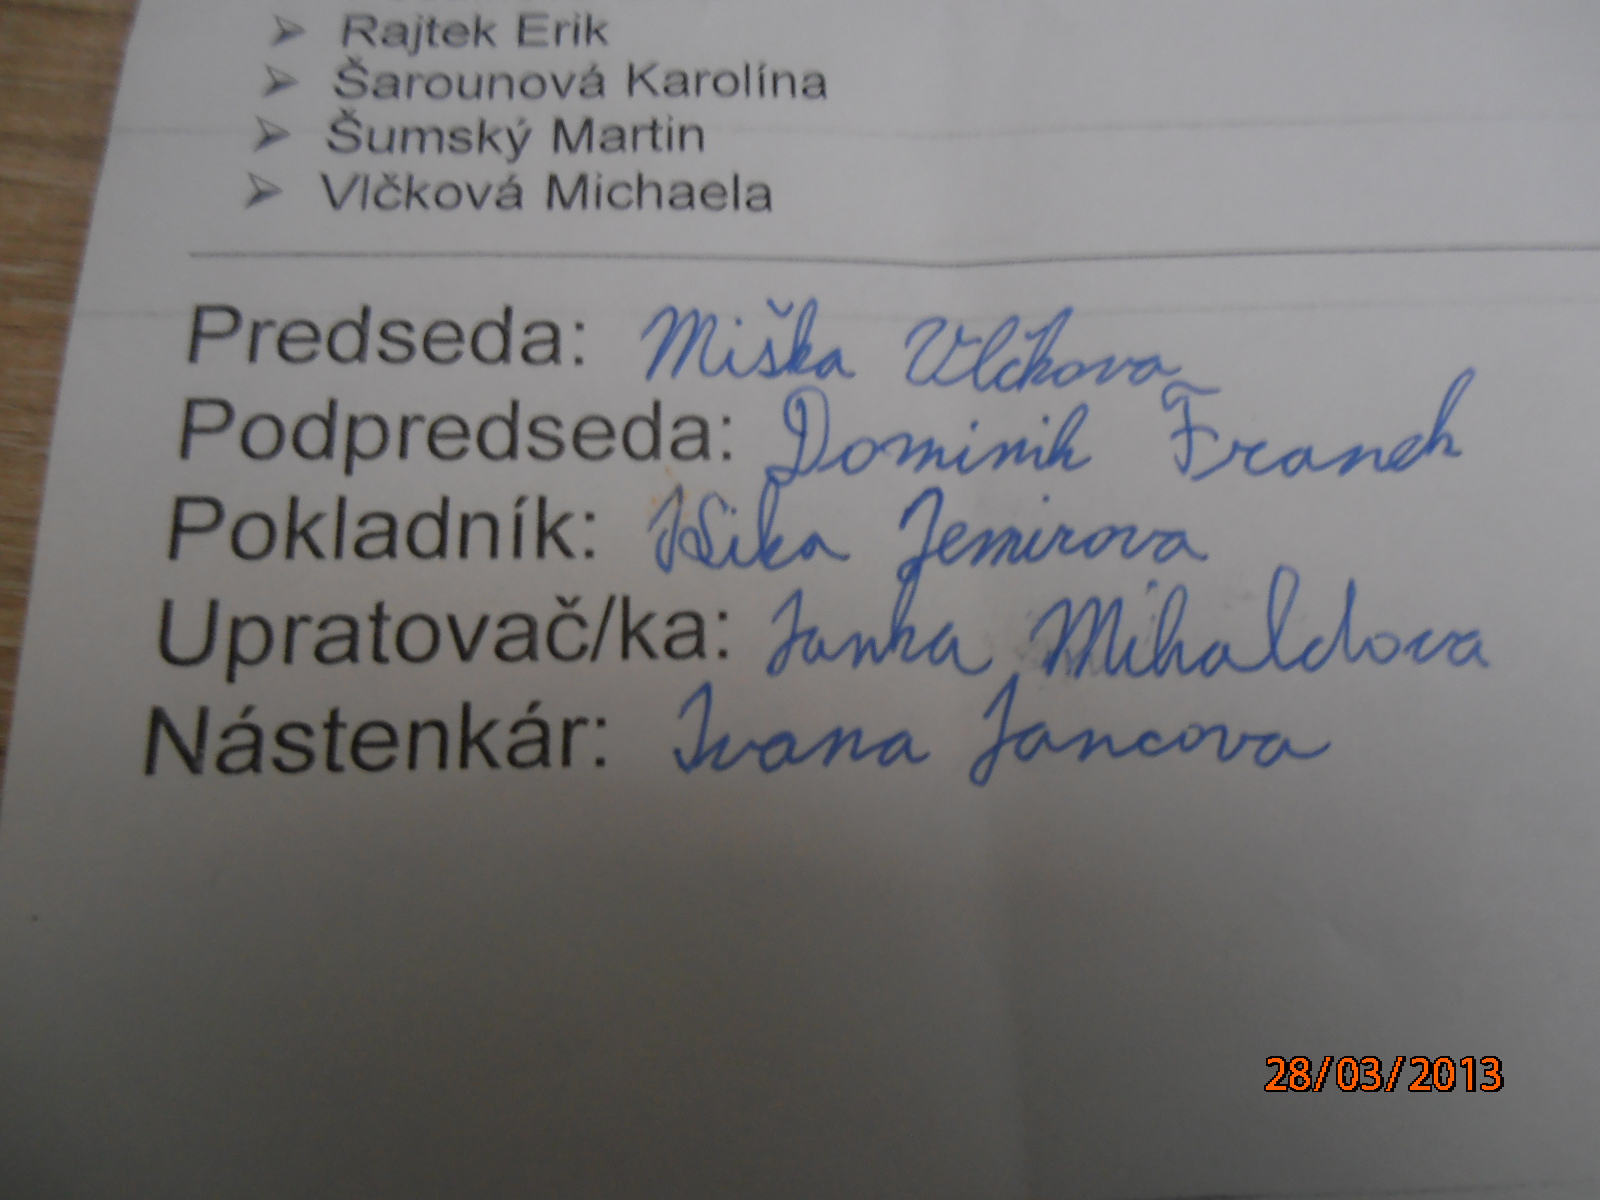 Rajtek Erik
Šarounová Karolína
Šumský Martin
Vlčková Michaela
Predseda: Miška Vlčkova
Podpredseda: Dominik Franek
Pokladník: Nika Jemirova
Upratovač/ka: Janka Mihaldova
Nástenkár: Ivana Jancova
28/03/2013